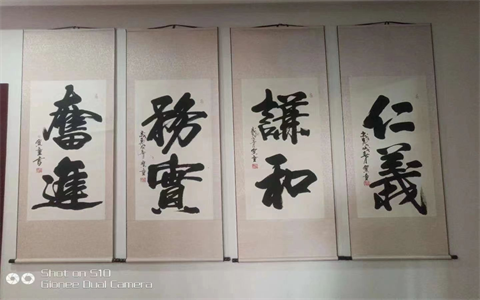 仁義
謙和
務實
奮進
Shot on S10
Gionee Dual Camera